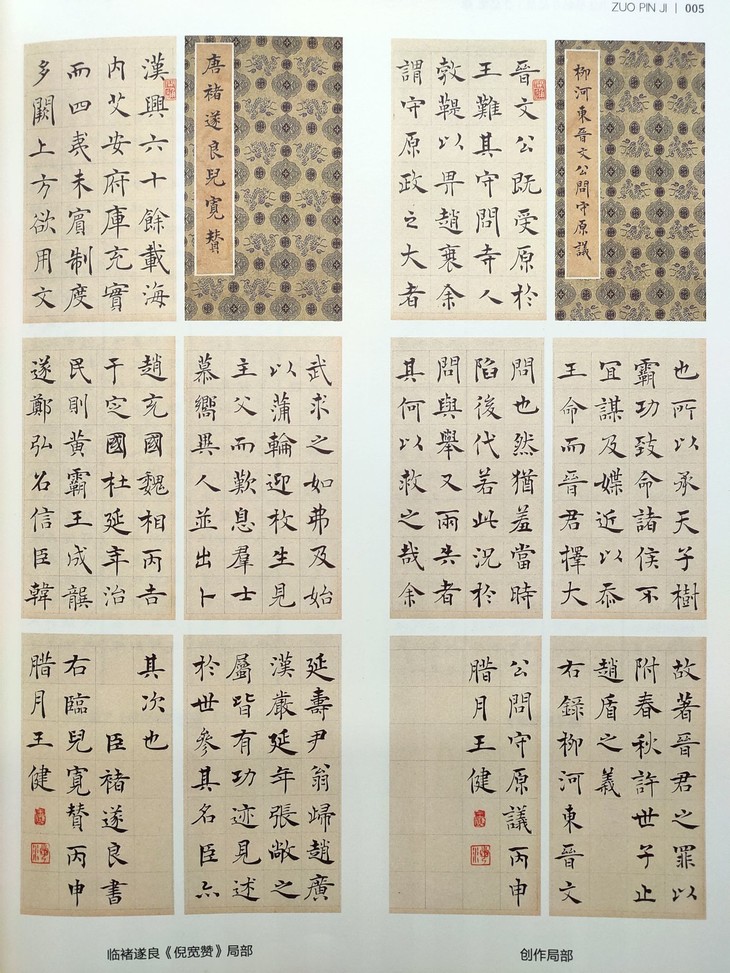 ZUO PIN JI | 005
柳河東晉文公問守原議
晉文公既受原於
王難其守問寺人
㪍鞮以畀趙衰余
謂守原政之大者
也所以承天子樹
霸功致命諸侯不
宜謀及媟近以忝
王命而晉君擇大
問也然猶羞當時
陷後代若此況於
問與舉又兩失者
其何以救之哉余
故著晉君之罪以
附春秋許世子止
趙盾之義
右錄柳河東晉文
公問守原議丙申
腊月王健
创作局部
唐褚遂良兒寬贊
漢興六十餘載海
内艾安府庫充實
而四夷未賓制度
多闕上方欲用文
武求之如弗及始
以蒲輪迎枚生見
主父而歎息羣士
慕嚮異人並出卜
趙充國魏相丙吉
于定國杜延年治
民則黃霸王成龔
遂鄭弘召信臣韓
延壽尹翁歸趙廣
漢嚴延年張敞之
屬皆有功迹見述
於世參其名臣亦
其次也
臣褚遂良書
右臨兒寬贊丙申
腊月王健
临褚遂良《倪宽赞》局部